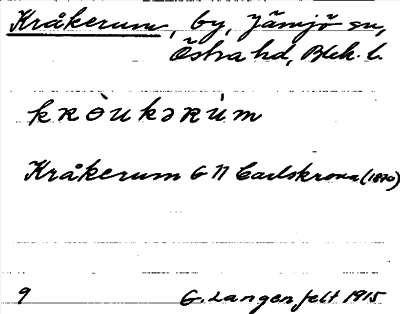 Kråkerum, by, Jämjö sn,
Östra hd, Blek. l.
kròukərùm
Kråkerum G 11 Carlskrona (1870)
9 G. Langenfelt 1915